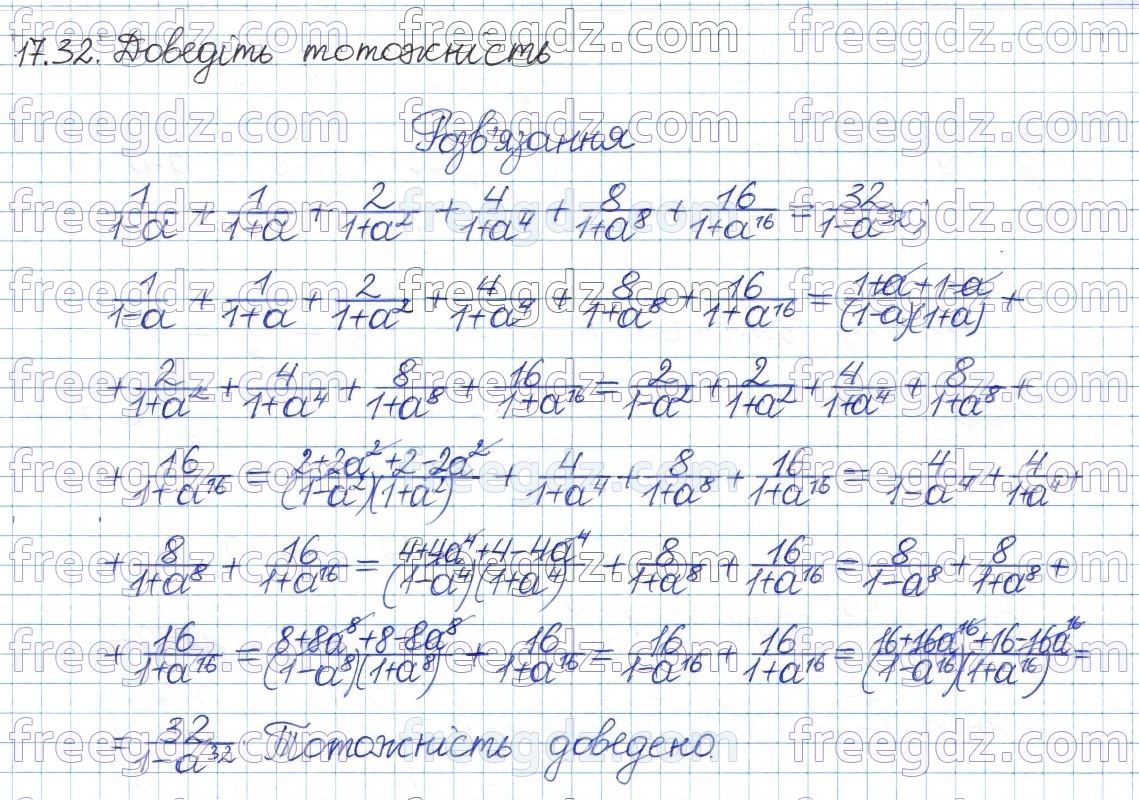 17.32. Доведіть тотожність
Розв'язання
1/(1-a) + 1/(1+a) + 2/(1+a²) + 4/(1+a⁴) + 8/(1+a⁸) + 16/(1+a¹⁶) = 32/(1-a³²);
1/(1-a) + 1/(1+a) + 2/(1+a²) + 4/(1+a⁴) + 8/(1+a⁸) + 16/(1+a¹⁶) = (1+a+1-a)/((1-a)(1+a)) +
+ 2/(1+a²) + 4/(1+a⁴) + 8/(1+a⁸) + 16/(1+a¹⁶) = 2/(1-a²) + 2/(1+a²) + 4/(1+a⁴) + 8/(1+a⁸) +
+ 16/(1+a¹⁶) = (2+2a²+2-2a²)/((1-a²)(1+a²)) + 4/(1+a⁴) + 8/(1+a⁸) + 16/(1+a¹⁶) = 4/(1-a⁴) + 4/(1+a⁴) +
+ 8/(1+a⁸) + 16/(1+a¹⁶) = (4+4a⁴+4-4a⁴)/((1-a⁴)(1+a⁴)) + 8/(1+a⁸) + 16/(1+a¹⁶) = 8/(1-a⁸) + 8/(1+a⁸) +
+ 16/(1+a¹⁶) = (8+8a⁸+8-8a⁸)/((1-a⁸)(1+a⁸)) + 16/(1+a¹⁶) = 16/(1-a¹⁶) + 16/(1+a¹⁶) = (16+16a¹⁶+16-16a¹⁶)/((1-a¹⁶)(1+a¹⁶)) =
= 32/(1-a³²). Тотожність доведено.
freegdz.com